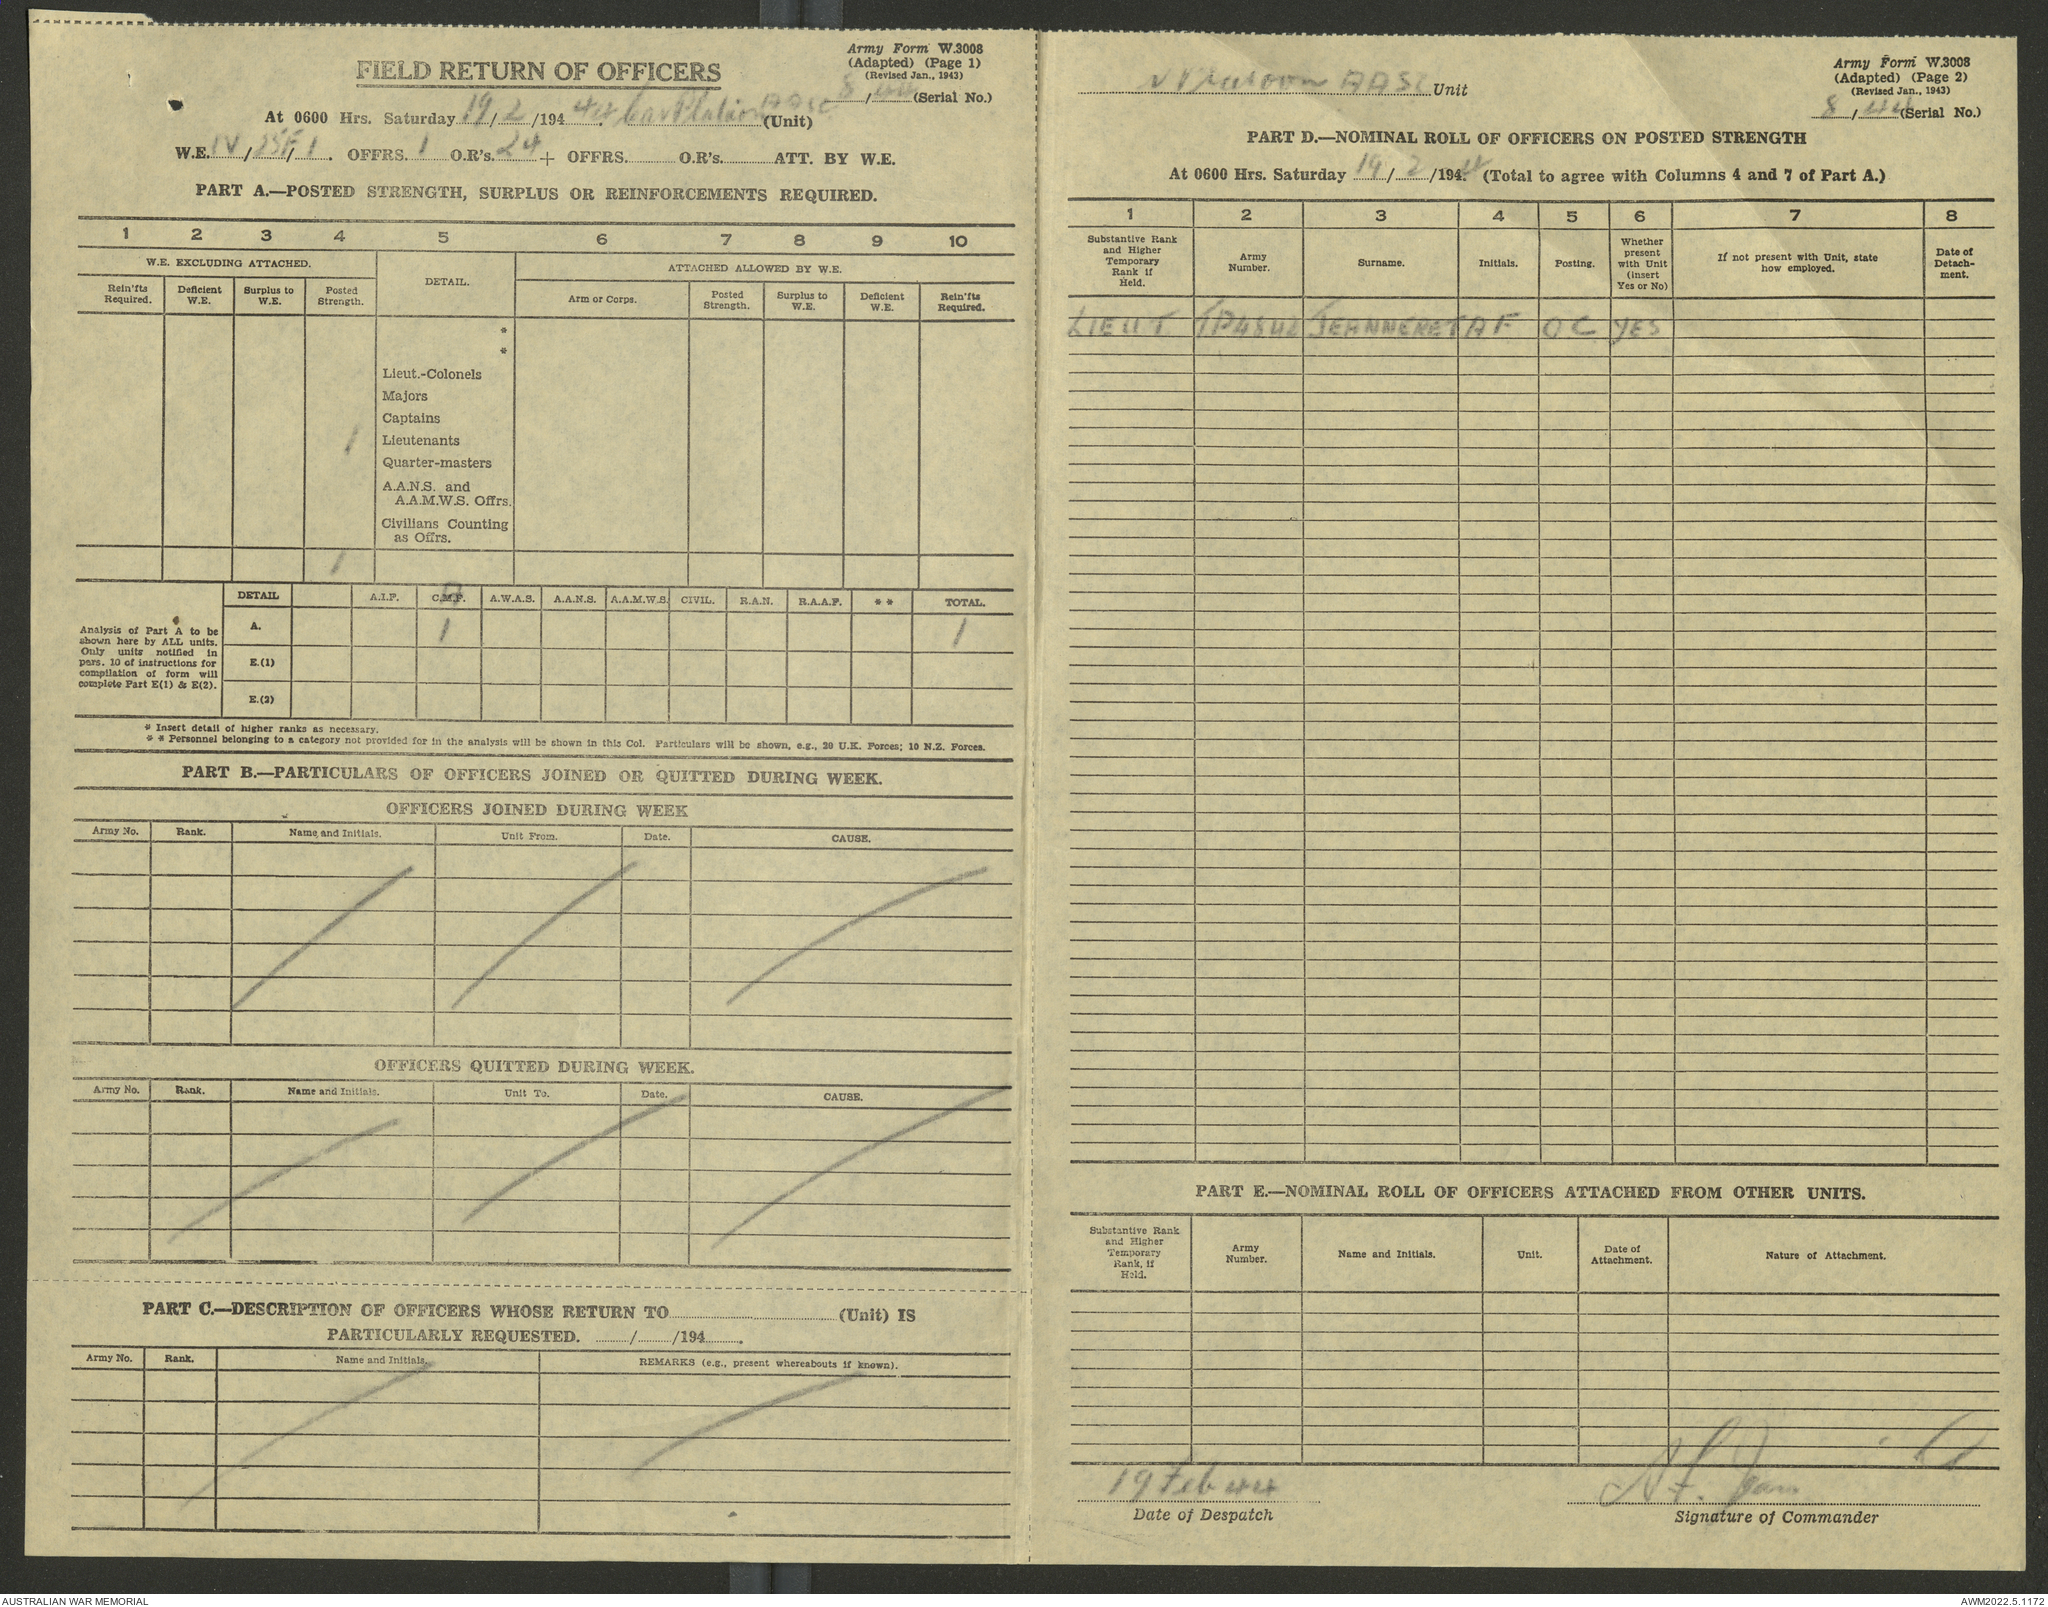 Army Form W.3008
(Adapted) (Page 1)
(Revised Jan., 1943)
8/44 (Serial No.)
FIELD RETURN OF OFFICERS
At 0600 Hrs. Saturday 19/2/1944. Platoon AASC (Unit)
W.E. IV/25F/1. OFFRS. 1 O.R's. 24 + OFFRS. O.R's. ATT. BY W.E.
PART A.—POSTED STRENGTH, SURPLUS OR REINFORCEMENTS REQUIRED.
1 2 3 4 5 6 7 8 9 10
W.E. EXCLUDING ATTACHED. DETAIL. ATTACHED ALLOWED BY W.E.
Rein'fts Required. Deficient W.E. Surplus to W.E. Posted Strength. Arm or Corps. Posted Strength. Surplus to W.E. Deficient W.E. Rein'fts Required.
*
*
Lieut.-Colonels
Majors
Captains
1 Lieutenants
Quarter-masters
A.A.N.S. and
A.A.M.W.S. Offrs.
Civilians Counting
as Offrs.
1
DETAIL A.I.F. C.M.F. A.W.A.S. A.A.N.S. A.A.M.W.S. CIVIL. R.A.N. R.A.A.F. * * TOTAL.
A. 1 1
E.(1)
E.(2)
Analysis of Part A to be
shown here by ALL units.
Only units notified in
pars. 10 of instructions for
compilation of form will
complete Part E(1) & E(2).
* Insert detail of higher ranks as necessary.
* * Personnel belonging to a category not provided for in the analysis will be shown in this Col. Particulars will be shown, e.g., 20 U.K. Forces; 10 N.Z. Forces.
PART B.—PARTICULARS OF OFFICERS JOINED OR QUITTED DURING WEEK.
OFFICERS JOINED DURING WEEK
Army No. Rank. Name and Initials. Unit From. Date. CAUSE.
OFFICERS QUITTED DURING WEEK.
Army No. Rank. Name and Initials. Unit To. Date. CAUSE.
PART C.—DESCRIPTION OF OFFICERS WHOSE RETURN TO (Unit) IS
PARTICULARLY REQUESTED. / /194 .
Army No. Rank. Name and Initials. REMARKS (e.g., present whereabouts if known).
Army Form W.3008
(Adapted) (Page 2)
(Revised Jan., 1943)
8/44 (Serial No.)
Platoon AASC Unit
PART D.—NOMINAL ROLL OF OFFICERS ON POSTED STRENGTH
At 0600 Hrs. Saturday 19/2/1944 (Total to agree with Columns 4 and 7 of Part A.)
1 2 3 4 5 6 7 8
Substantive Rank and Higher Temporary Rank if Held. Army Number. Surname. Initials. Posting. Whether present with Unit (insert Yes or No) If not present with Unit, state how employed. Date of Detach-ment.
LIEUT JEANNERET A F OC YES
PART E.—NOMINAL ROLL OF OFFICERS ATTACHED FROM OTHER UNITS.
Substantive Rank and Higher Temporary Rank, if Held. Army Number. Name and Initials. Unit. Date of Attachment. Nature of Attachment.
19 Feb 44
Date of Despatch
Signature of Commander
AUSTRALIAN WAR MEMORIAL
AWM2022.5.1172